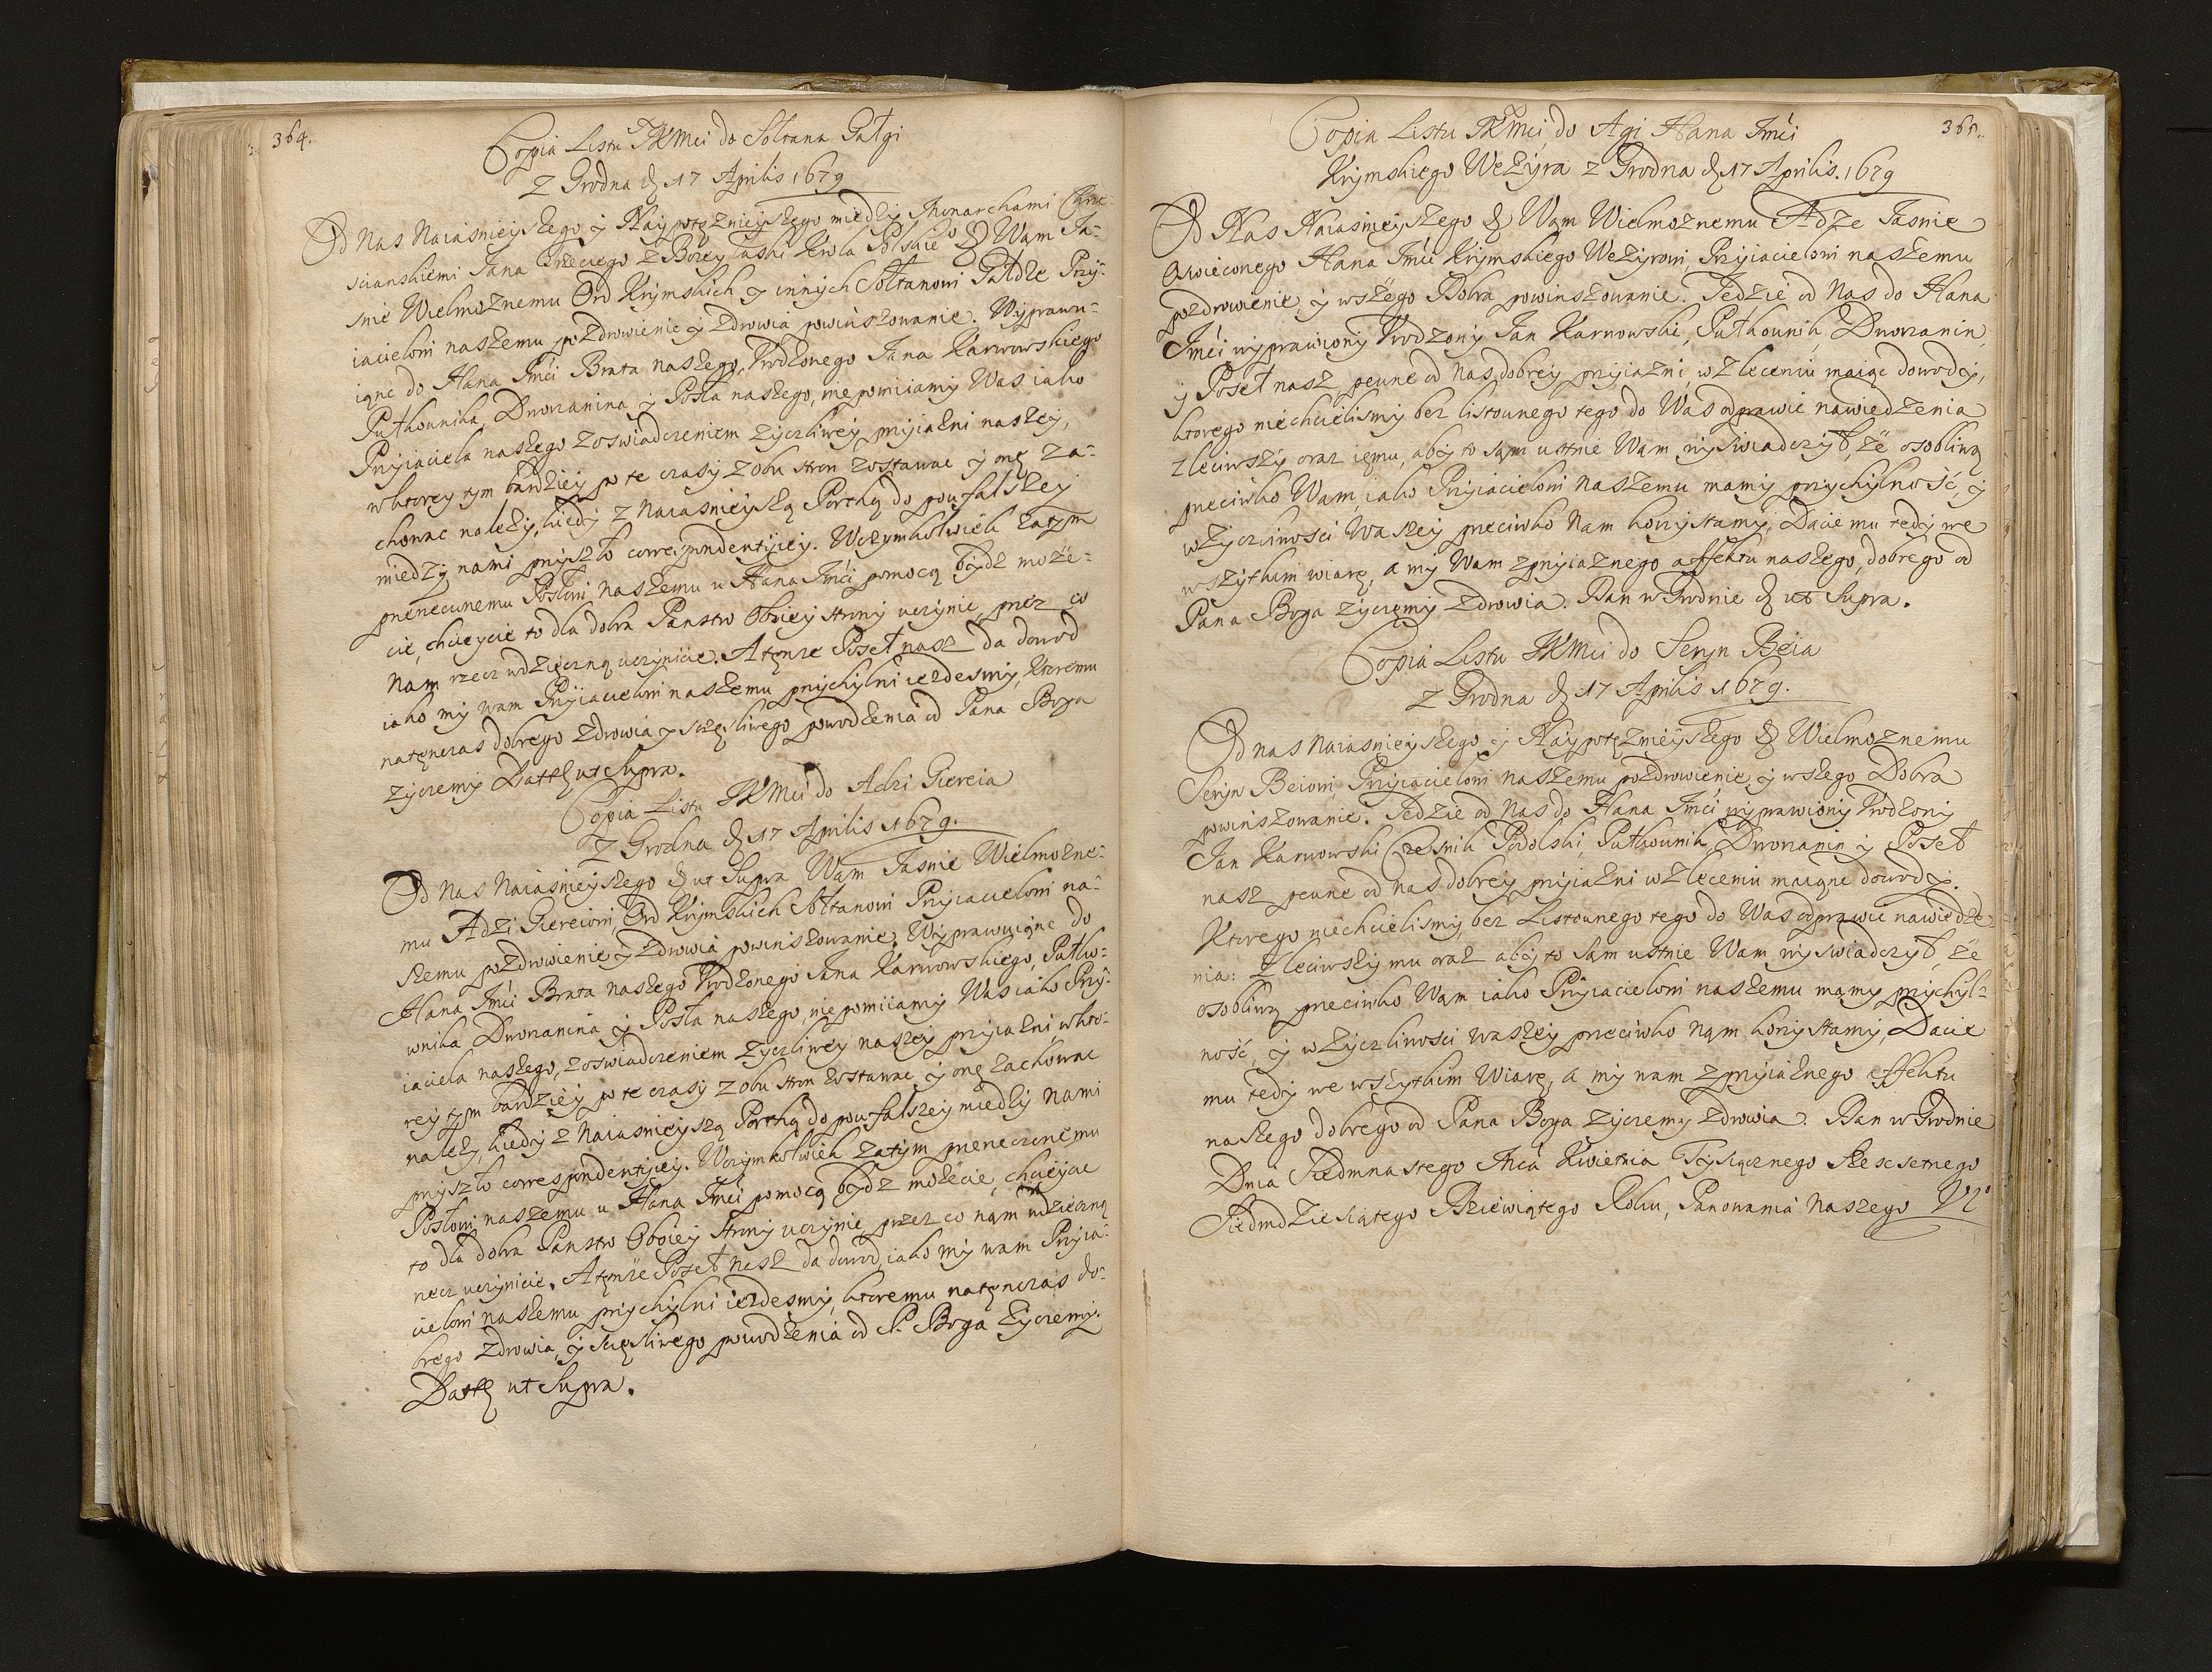 364.
Copia Listu JKMci do Sołtana Gałgi
z Grodna d. 17 Aprilis 1679
Od Nas Naiasnieyszego y Naypotęznieyszego miedzy Monarchami Chrze-
scianskiemi Jana Trzeciego z Bozey łaski Krola Polskie° &c Wam Ja-
snie Wielmoznemu Ord Krymskich y innych Sołtanowi Gałdze Przy-
iacielowi naszemu pozdrowienie y zdrowia powinszowanie. Wyprawu-
iąc do Hana Jmći Brata naszego, Urodzonego Jana Karwowskiego
Pułkownika, Dworzanina y Posła naszego, nie pomiiamy Was iako
Przyiaciela naszego z oswiadczeniem zyczliwey przyiazni naszey,
w ktorey tym bardziey po te czasy z obu stron zostawac y onę za-
chowac nalezy, kiedy z Naiasnieyszą Porthą do poufalszey
miedzy nami przyszło correspondentiyey. Wczymkolwiek zatym
przerzeczonemu Posłowi naszemu u Hana Jmći pomocą bydz moze-
cie, chcieycie to dla dobra Panstw Oboiey strony uczynic, przez co
Nam rzecz wdzięczną uczynicie. A tenze Poseł nasz da dowod
iako my wam Przyiacielowi naszemu przychylni iezdesmy, ktoremu
natęnczas dobrego zdrowia y szczęsliwego powodzenia od Pana Boga
zyczemy Datt ut Supra.
Copia Listu JKMci do Adzi Giereia
z Grodna d. 17 Aprilis 1679.
Od Nas Naiasnieyszego &c ut Supra Wam Jasnie Wielmozne-
mu Adzi Giereiowi, Ord Krymskich Sołtanowi Przyiacielowi na-
szemu pozdrowienie y zdrowia powinszowanie. Wyprawuiąc do
Hana Jmći Brata naszego Urodzonego Jana Karwowskiego, Pułko-
wnika Dworzanina y Posła naszego, nie pomiiamy Was iako Przy-
iaciela naszego, z oswiadczeniem zyczliwey naszey przyiazni w kto-
rey tym bardziey po te czasy z obu stron zostawac y onę zachowac
nalezy, kiedy z Naiasnieyszą Porthą do poufalszey miedzy Nami
przyszło correspondentiyey. Wczymkolwiek zatym przerzeczonemu
Posłowi naszemu u Hana Jmći pomocą bydz mozecie, chcieycie
to dla dobra Panstw Oboiey strony uczynic, przez co nam wdzięczną
rzecz uczynicie. A tenze Poseł nasz da dowod, iako my wam Przyia-
cielowi naszemu przychylni iezdesmy, ktoremu natęnczas do-
brego zdrowia, y szczęsliwego powodzenia od P. Boga zyczemy.
Datt ut Supra.
365.
Copia Listu JKMci do Agi Hana Jmći
Krymskiego Wezyra z Grodna d. 17 Aprilis. 1679
Od Nas Naiasnieyszego &c Wam Wielmoznemu Adze Jasnie
Oswieconego Hana Jmći Krymskiego Wezyrowi, Przyiacielowi naszemu
pozdrowienie, y wszego Dobra powinszowanie. Jedzie od Nas do Hana
Jmći wyprawiony Urodzony Jan Karwowski, Pułkownik, Dworzanin,
y Poseł nasz, pewne od nas dobrey przyiazni, w zleceniu maiąc dowody,
ktorego niechcielismy bez listownego tego do Was odprawic nawiedzenia
zleciwszy oraz iemu, aby to sam ustnie Wam wyswiadczył, że osobliwą
przeciwko Wam, iako Przyiacielowi Naszemu mamy przychylność, y
w zyczliwosci Waszey przeciwko Nam korzystamy; Dacie mu tedy we
wszytkim wiarę, a my Wam z przyiaznego affektu naszego, dobrego od
Pana Boga zyczemy zdrowia. Dan w Grodnie d. ut Supra.
Copia Listu JKMci do Seryn Beia
z Grodna d. 17 Aprilis 1679.
Od nas Naiasnieyszego y Naypotęznieyszego &c Wielmoznemu
Seryn Beiowi, Przyiacielowi naszemu pozdrowienie, y wszego Dobra
powinszowanie. Jedzie od Nas do Hana Jmći wyprawiony Urodzony
Jan Karwowski Czesnik Podolski, Pułkownik, Dworzanin y Poseł
nasz pewne od nas dobrey przyiazni w zleceniu maiąc dowody.
Ktorego niechcielismy bez Listownego tego do Was odprawic nawiedze-
nia: Zleciwszy mu oraz aby to sam ustnie Wam wyswiadczył, że
osobliwą przeciwko Wam iako Przyiacielowi naszemu mamy przychyl-
ność, y w zyczliwosci waszey przeciwko nam korzystamy, Dacie
mu tedy we wszytkim Wiarę, a my wam z przyiaznego effektu
naszego dobrego od Pana Boga zyczemy zdrowia. Dan w Grodnie
Dnia Siedmnastego Mca Kwietnia Tysiącznego Szescsetnego
Siedmdziesiątego Dziewiątego Roku, Panowania Naszego VI°